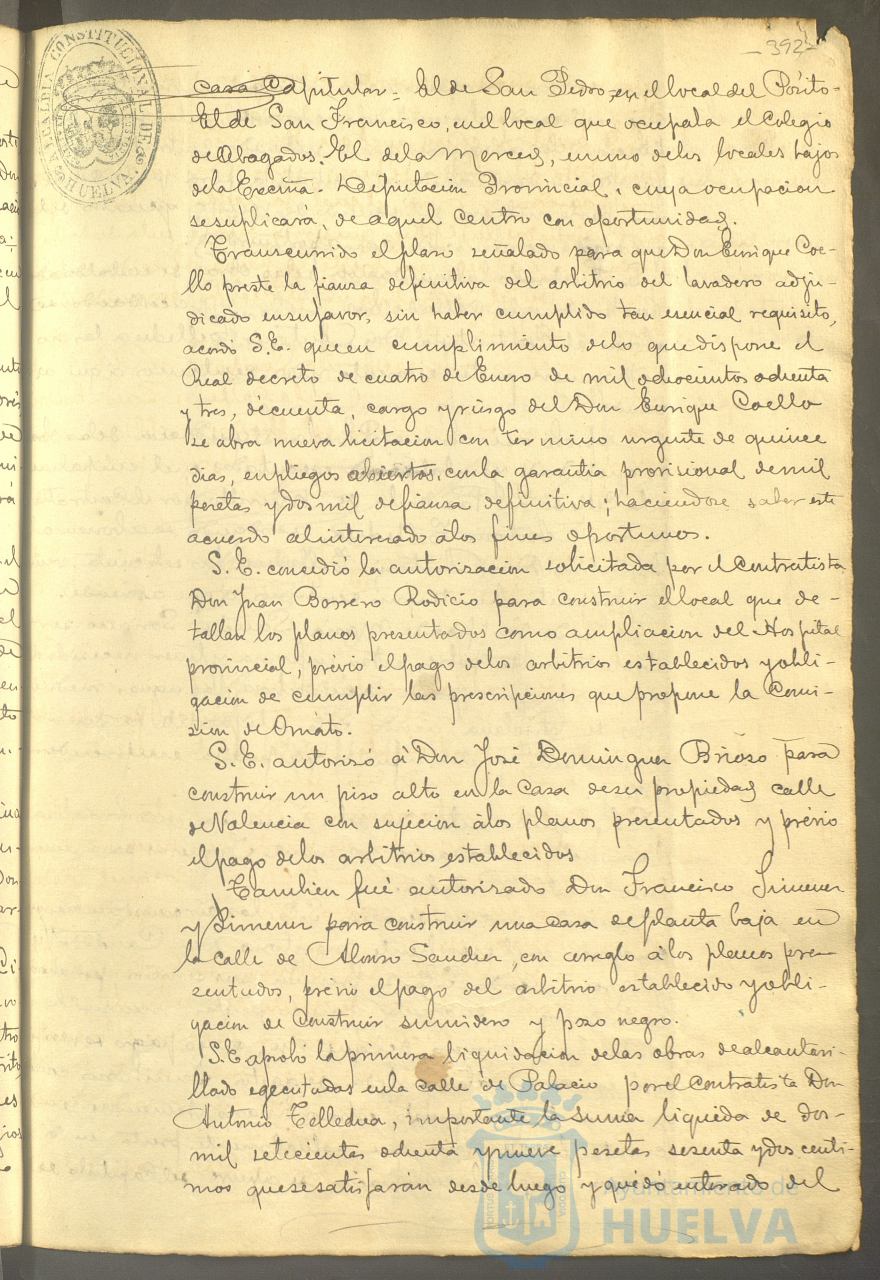 -392-
ALCALDIA CONSTITUCIONAL DE HUELVA
casa Capitular - El de San Pedro, en el local del Pósito-
El de San Francisco, en el local que ocupaba el Colegio
de Abogados. El de la Merced, en uno de los locales bajos
de la Excma. Diputacion Provincial, cuya ocupacion
se suplicará, de aquel centro con oportunidad.
Transcurrido el plazo señalado para que Don Enrique Coe-
llo preste la fianza definitiva del arbitrio del lavadero adju-
dicado en su favor, sin haber cumplido tan esencial requisito,
acordó S.E. que en cumplimiento de lo que dispone el
Real decreto de cuatro de Enero de mil ochocientos ochenta
y tres, de cuenta, cargo y riesgo del Don Enrique Coello
se abra nueva licitacion con termino urgente de quince
dias, en pliegos abiertos, con la garantia provisional de mil
pesetas y dos mil de fianza definitiva; haciendose saber este
acuerdo al interesado á los fines oportunos.
S. E. concedió la autorizacion solicitada por el contratista
Don Juan Borrero Rodicio para construir el local que de-
tallan los planos presentados como ampliacion del Hospital
provincial, prévio el pago de los arbitrios establecidos y obli-
gacion de cumplir las prescripciones que propone la Comi-
sion de Ornato.
S. E. autorizó á Don José Dominguez Brioso para
construir un piso alto en la Casa de su propiedad calle
de Valencia con sujecion á los planos presentados y prévio
el pago de los arbitrios establecidos
Tambien fué autorizado Don Francisco Jimenez
y Jimenez para construir una casa de planta baja en
la calle de Alonso Sanchez, con arreglo á los planos pre-
sentados, prévio el pago del arbitrio establecido y obli-
gacion de construir sumidero y pozo negro.
S.E. aprobó la primera liquidacion de las obras de alcantari-
llado egecutadas en la calle de Palacio por el contratista Don
Antonio Tellechea, importante la suma liquida de dos-
mil setecientas ochenta y nueve pesetas sesenta y dos centi-
mos que se satisfarán desde luego y quedó enterado del
Ayuntamiento de
HUELVA